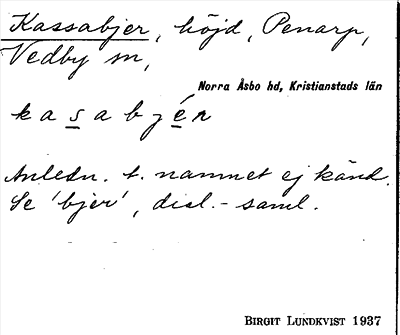 Kassabjer, höjd, Penarp,
Vedby sn,
Norra Åsbo hd, Kristianstads län
kasabjér
Anledn. t. namnet ej känd.
Se 'bjer', dial.-saml.
BIRGIT LUNDKVIST 1937